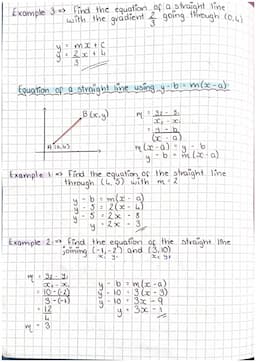 Example 3 => Find the equation of a straight line
with the gradient 2/3 going through (0,4)
y = mx + c
y = 2/3 x + 4
Equation of a straight line using y - b = m(x - a)
B(x,y)
A(a,b)
m = y₂ - y₁ / x₂ - x₁
= y - b / (x - a)
m(x - a) = y - b
y - b = m(x - a)
Example 1 => Find the equation of the straight line
through (4, 5) with m = 2
y - b = m(x - a)
y - 5 = 2(x - 4)
y - 5 = 2x - 8
y = 2x - 3
Example 2 => Find the equation of the straight line
joining (-1,-2) and (3,10)
x₁ y₁ x₂ y₂
m = y₂ - y₁ / x₂ - x₁
= 10 - (-2) / 3 - (-1)
= 12 / 4
m = 3
y - b = m(x - a)
y - 10 = 3(x - 3)
y - 10 = 3x - 9
y = 3x - 1